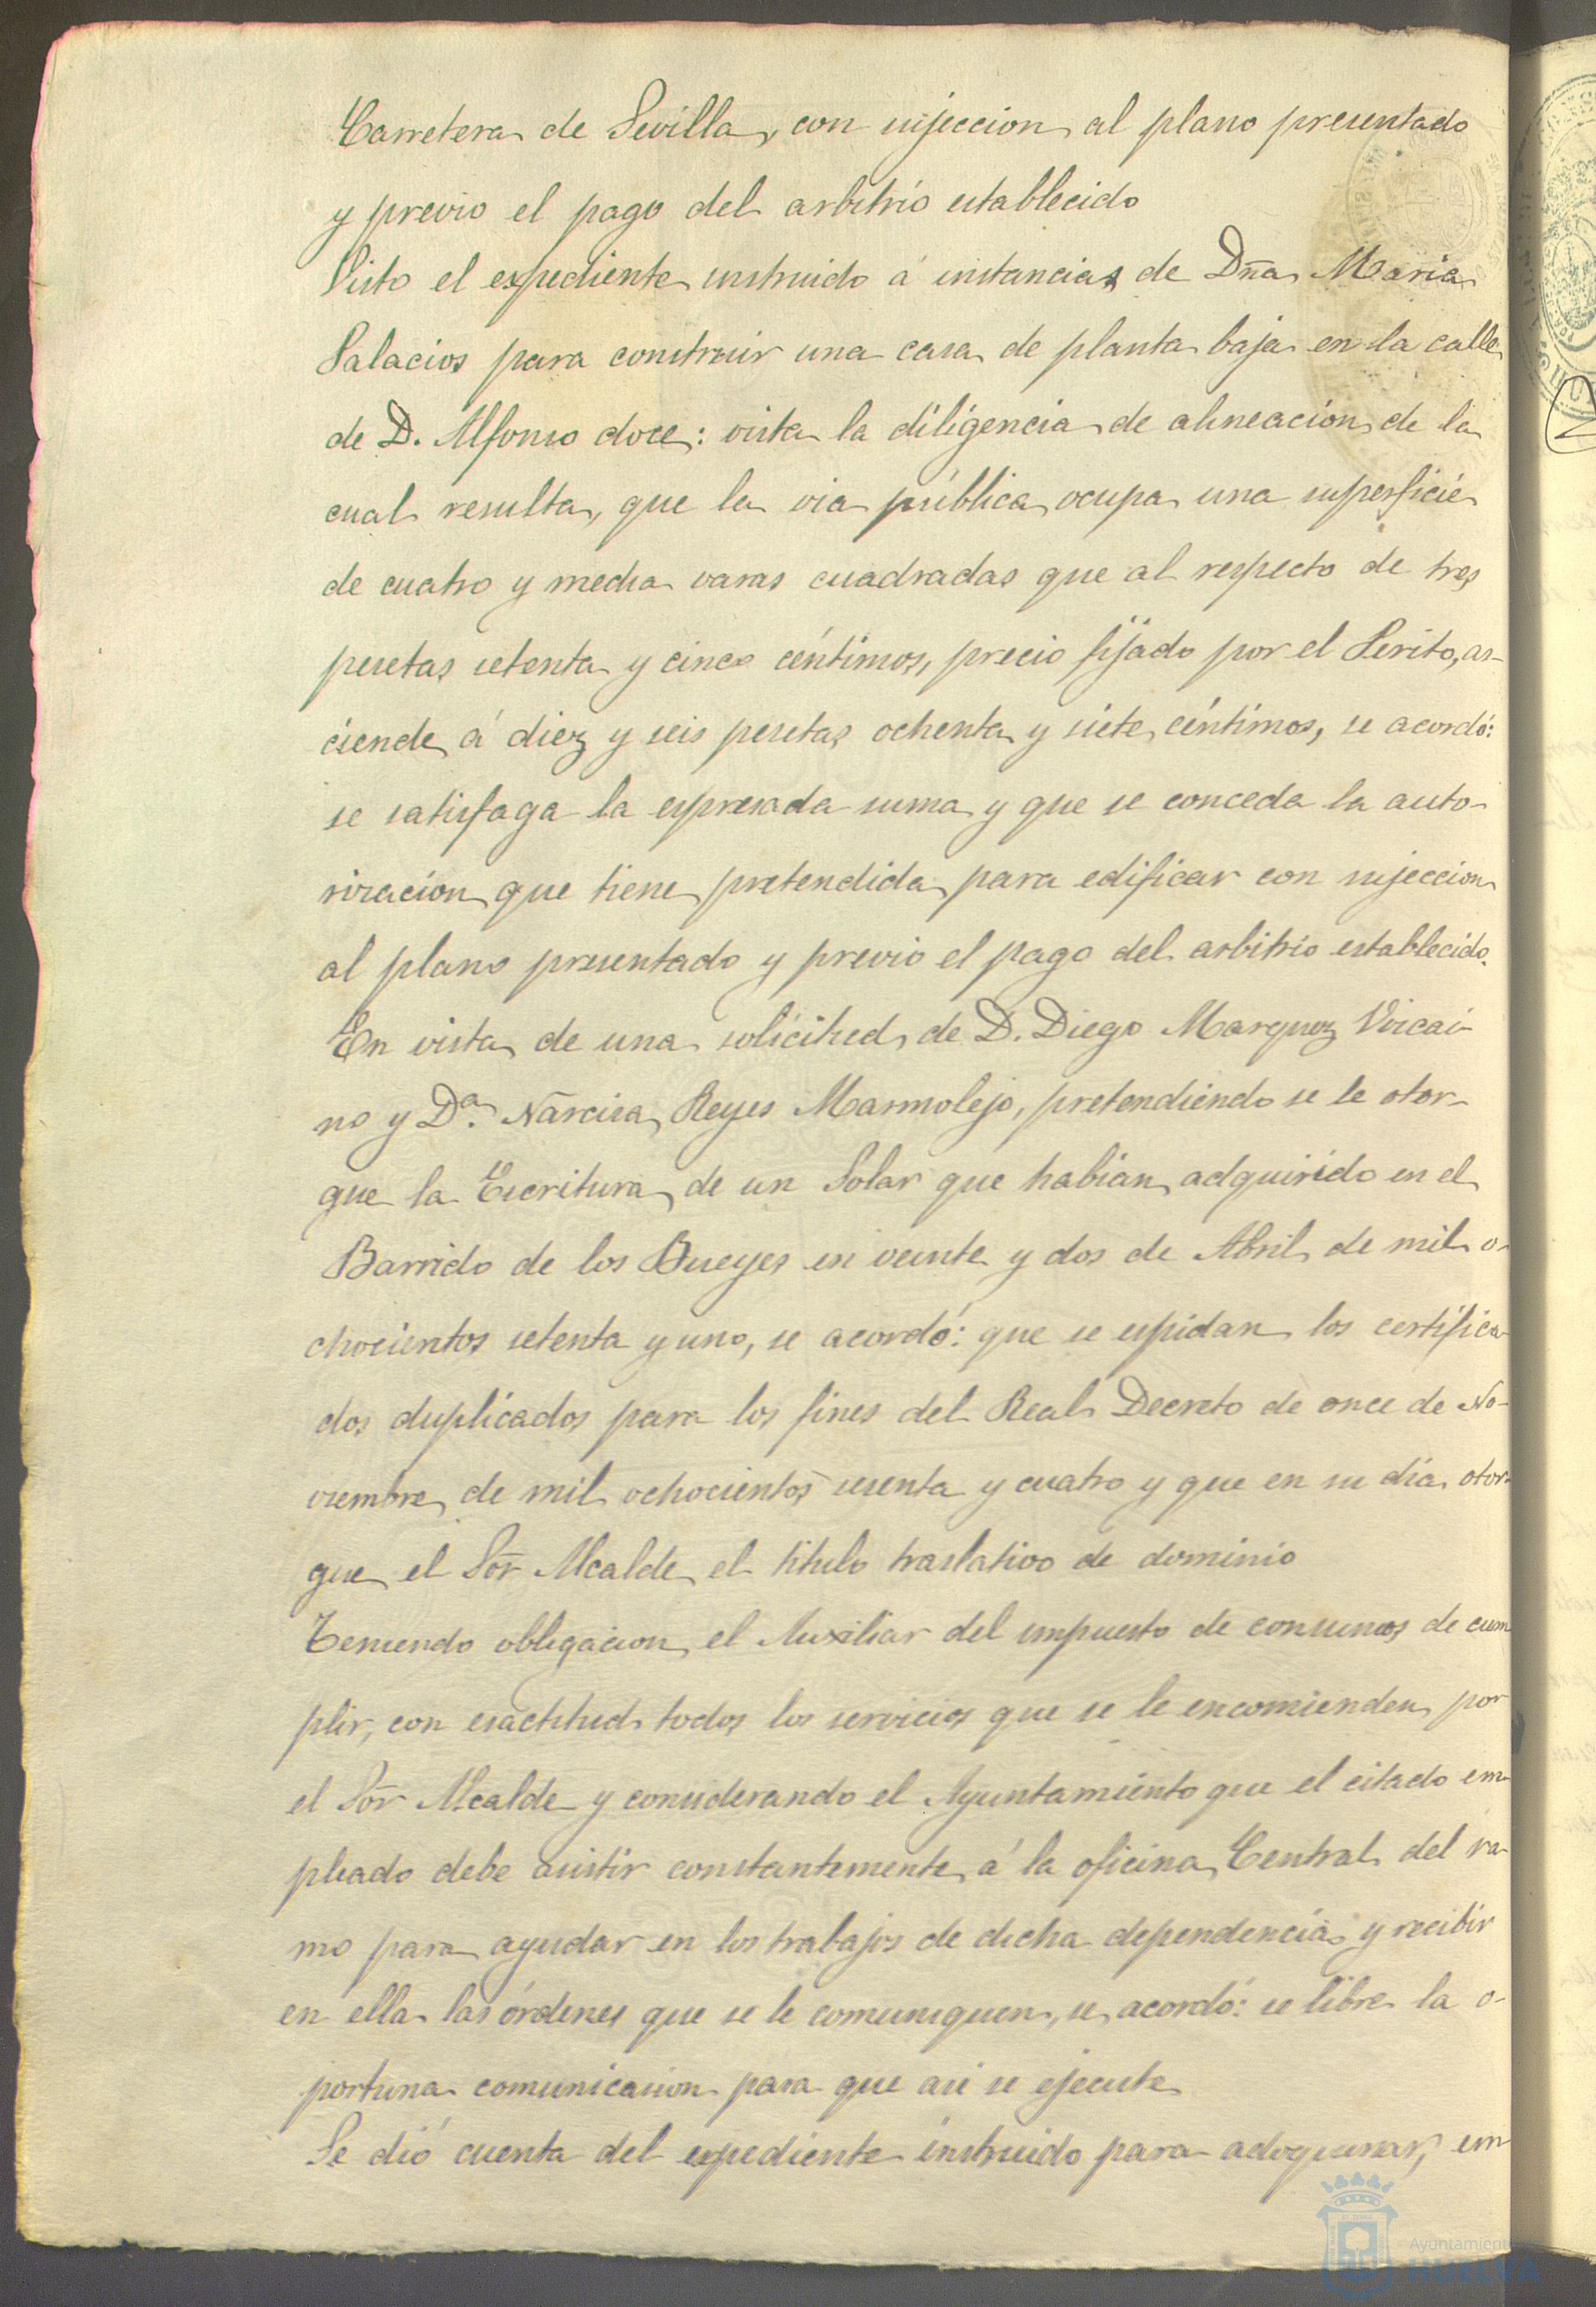 Carretera de Sevilla, con sujeccion al plano presentado
y previo el pago del arbitrio establecido
Visto el expediente instruido á instancias de Dña Maria
Palacios para construir una casa de planta baja en la calle
de D. Alfonso doce: vista la diligencia de alineacion de la
cual resulta, que la via pública ocupa una superficie
de cuatro y media varas cuadradas que al respecto de tres
pesetas setenta y cinco céntimos, precio fijado por el Perito, as-
ciende á diez y seis pesetas ochenta y siete céntimos, se acordó:
se satisfaga la espresada suma y que se conceda la auto-
rizacion que tiene pretendida para edificar con sujeccion
al plano presentado y previo el pago del arbitrio establecido.
En vista de una solicitud de D. Diego Marquez Vizcai-
no y Dª. Narcisa Reyes Marmolejo, pretendiendo se le otor-
gue la Escritura de un Solar que habian adquirido en el
Barrido de los Bueyes en veinte y dos de Abril de mil o-
chocientos setenta y uno, se acordó: que se espidan los certifica-
dos duplicados para los fines del Real Decreto de once de No-
viembre de mil ochocientos sesenta y cuatro y que en su dia otor-
gue el Sor Alcalde el titulo traslativo de dominio
Teniendo obligacion el Auxiliar del impuesto de consumos de cum
plir, con esactitud todos los servicios que se le encomienden por
el Sor Alcalde y considerando el Ayuntamiento que el citado em-
pleado debe asistir constantemente á la oficina Central del ra-
mo para ayudar en los trabajos de dicha dependencia y recibir
en ella las órdenes que se le comuniquen, se acordó: se libre la o-
portuna comunicacion para que asi se ejecute
Se dió cuenta del espediente instruido para adoquinar, em
Ayuntamiento
HUELVA